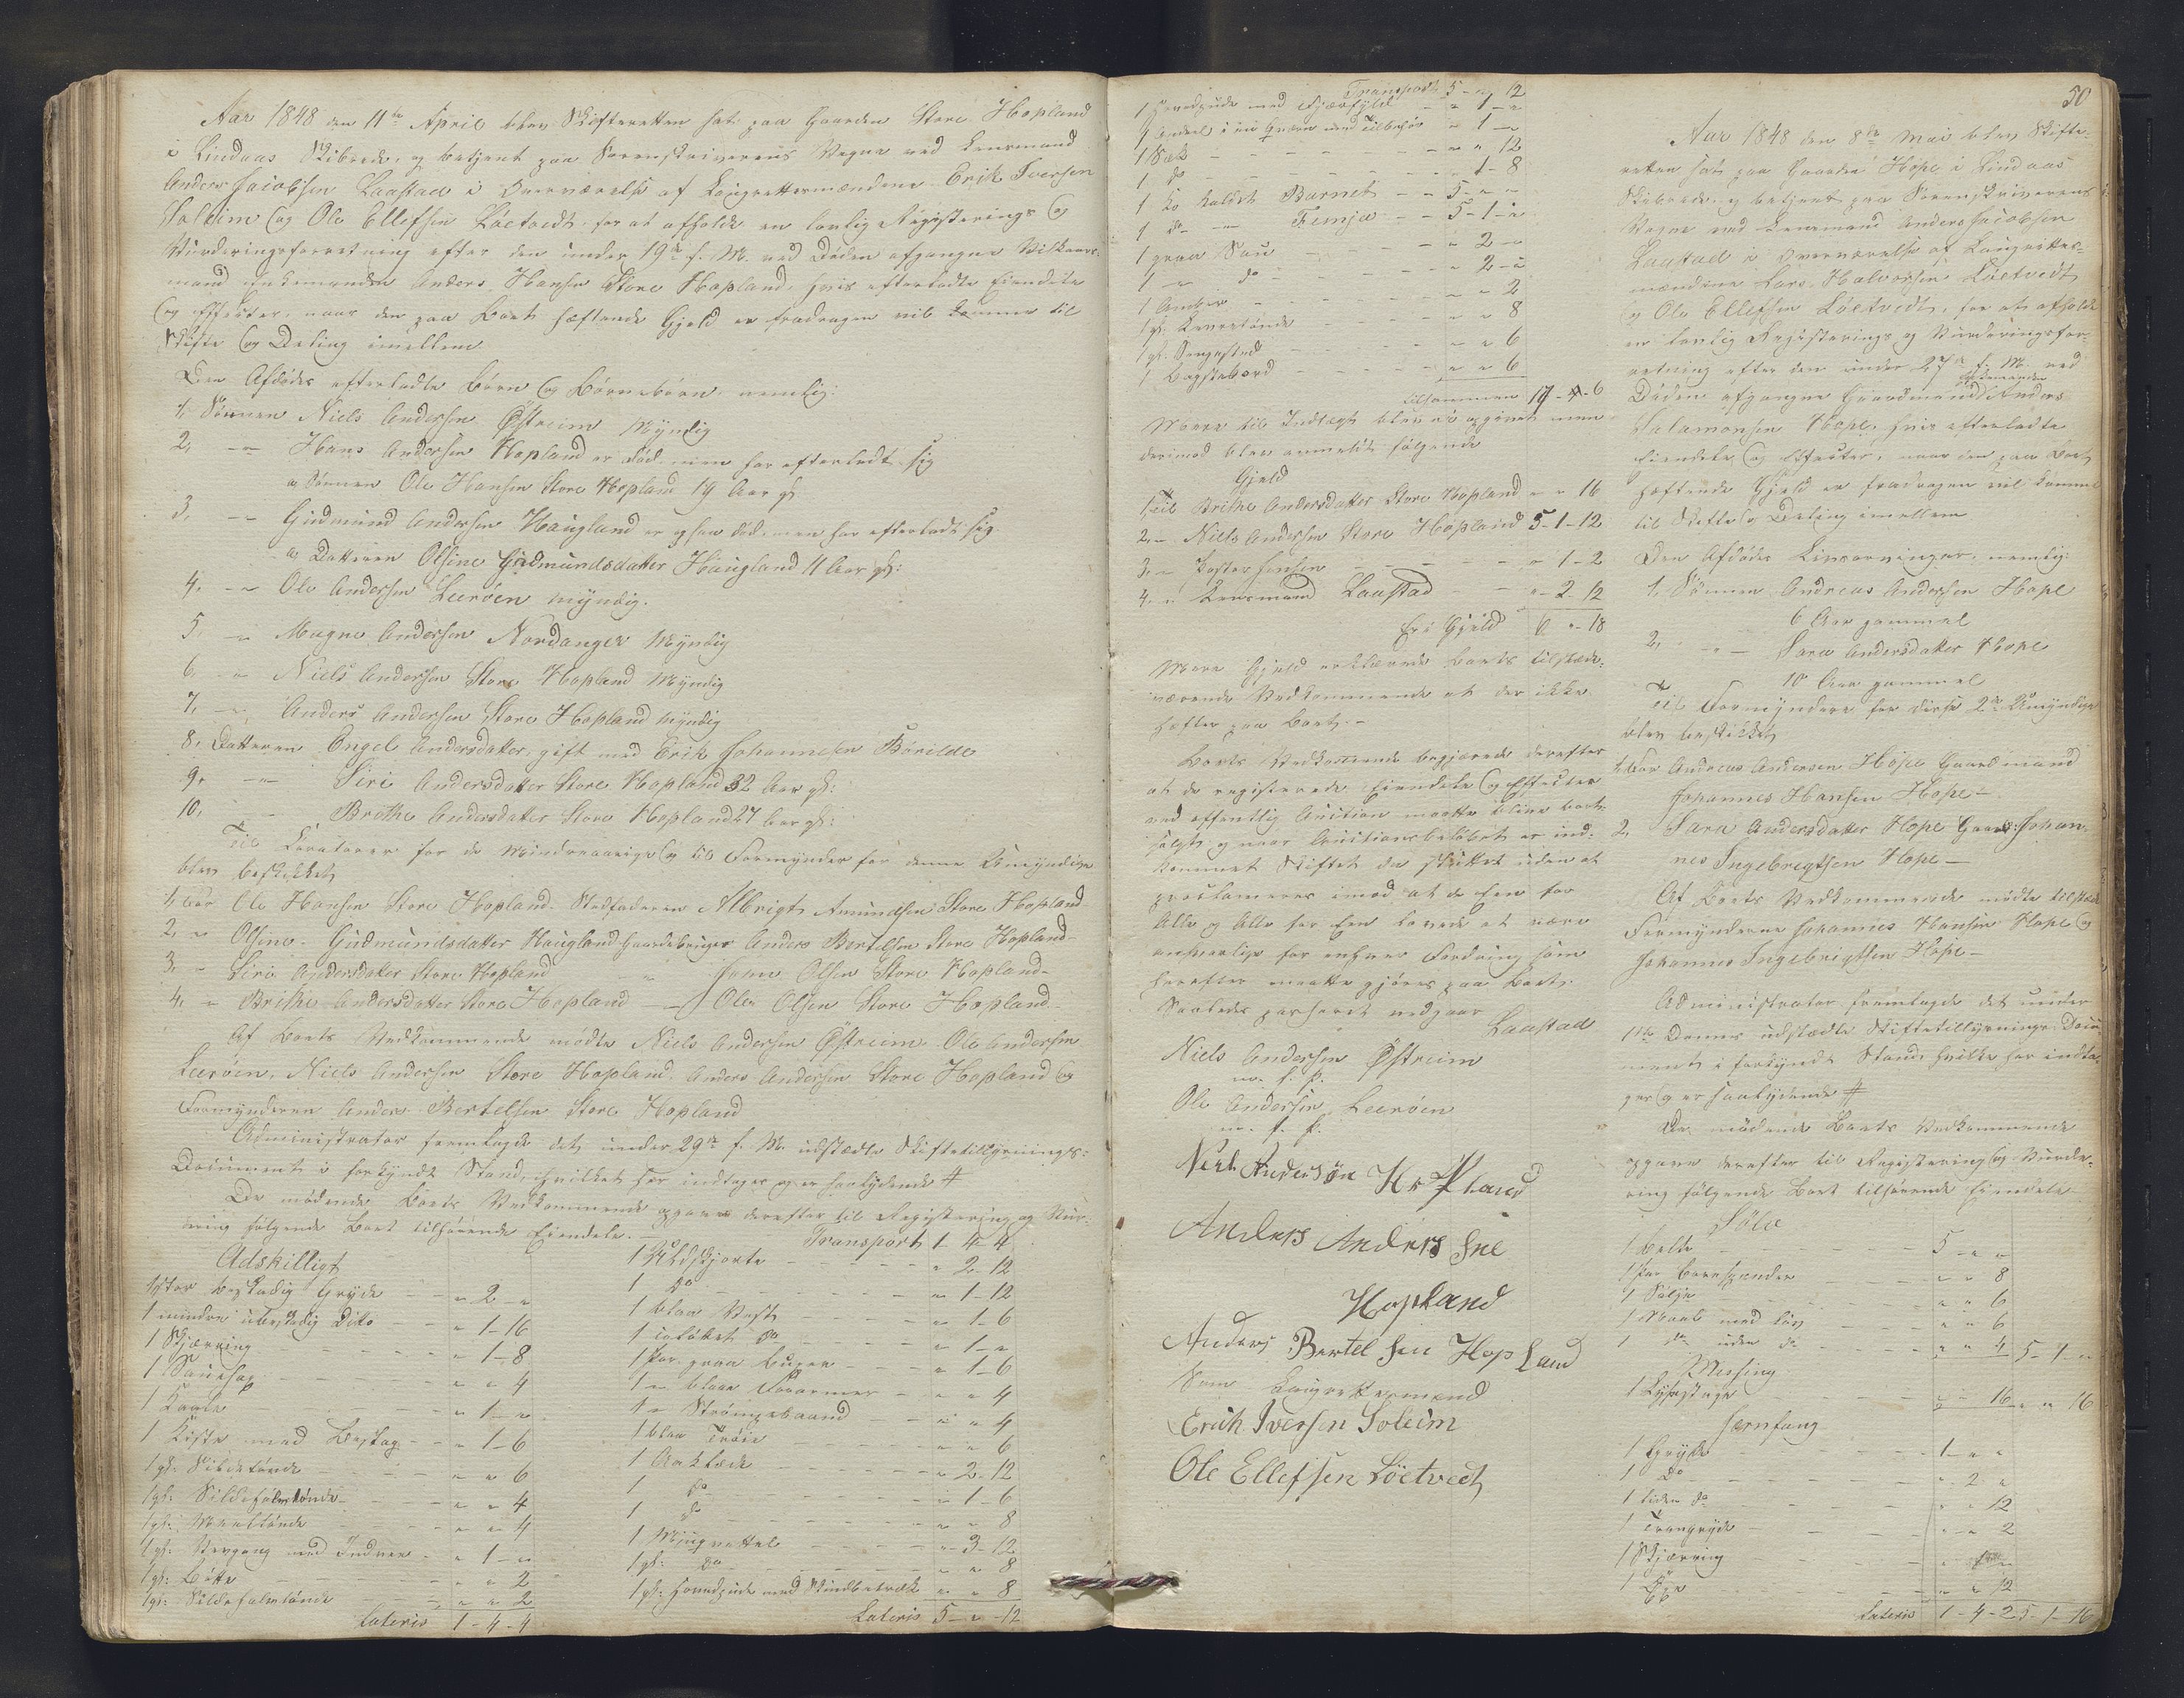 Aar 1848 den 11te April blev Skifteretten sat paa Gaarden Store Hopland
i Lindaas Skibrede, og betjent paa Sorenskriverens Vegne ved Lensmand
Anders Jacobsen Laastad i Overværelse af Laugrettesmændene Erik Iversen
Soleim og Ole Ellefsen Löetvedt for at afholde en lovlig Registerings og
Vurderingsforretning efter den under 19de f. M. ved Döden afgangne Vilkaars-
mand Enkemanden Anders Hansen Store Hopland, hvis efterladte Eiendele
og Effecter, naar den paa Boet hæftende Gjeld er fradragen vil komme til
Skifte og Deling imellem
Den Afdödes efterladte Börn og Börnebörn, nemlig:
1, Sönnen Niels Andersen Östreim Myndig
2, -"- Hans Andersen Hopland er död, men har efterladt sig
a Sönnen Ole Hansen Store Hopland 19 Aar gl.
3, -"- Gudmund Andersen Haugland er ogsaa död, men har efterladt sig
a, Datteren Olsine Gudmundsdatter Haugland 11 Aar gl:
4, -"- Ole Andersen Leeröen myndig.
5, -"- Magne Andersen Nordanger Myndig
6, -"- Niels Andersen Store Hopland Myndig
7, -"- Anders Andersen Store Hopland Myndig
8, Datteren Engel Andersdatter, gift med Erik Johannesen
9, -"- Siri Andersdatter Store Hopland 32 Aar gl:
10, - Brethe Andersdatter Store Hopland 27 Aar gl:
Til Curatorer for de Mindreaarige og til Formynder for denne Umyndige
blev beskikket
1, for Ole Hansen Store Hopland Stedfaderen Albrigt Amundsen Store Hopland
2, " Olsine Gudmundsdatter Haugland Gaardebruger Anders Bertelsen Store Hopland
3, " Siri Andersdatter Store Hopland " Olsen Store Hopland
4, " Brithe Andersdatter Store Hopland -"- Ole Olsen Store Hopland
Af Boets Vedkommende mödte Niels Andersen Östreim Ole Andersen
Leeröen, Niels Andersen Store Hopland, Anders Andersen Store Hopland og
Formynderen Anders Bertelsen Store Hopland
Administrator fremlagde det under 29de f. M. udstædte Skiftetillysnings-
Document i forkyndt Stand, hvilket her indtages og er saalydende #
De mödende Boets Vedkommende opgave derefter til Registering og Vur-
dering fölgende Boet tilhörende Eiendele.
Adskilligt
1 stor bestadig Gryde " 2 "
1 mindre ubestadig Ditto " 1 - 16
1 Skjærring " 1 - 8
1 Sauesax " " 4
1 " 1 "
1 Kiste med Beslag " 1 - 6
1 gl: Sildetönde " " 6
1 gl: " " 4
1 gl: Maaltönde " " 4
1 gl: " 1 "
1 gl: Bötte " " 2
1 gl: Sildehalvtönde " " 2
Lateris 1 - 4 - 4
Transport 1 - 4 - 4
1 Uldskjorte " 2 - 12
1 do " 1 - 12
1 blaa Vest " 1 - 6
1 do " 1 "
1 Par graa Buxer " 1 - 6
1 " blaae Forærmer " " 4
1 " Strömpebaand " " 4
1 blaa Tröie " " 6
1 Aaklæde " 2 - 12
1 do " 1 - 6
1 do " " 8
1 " 3 - 12
1 gl: do " " 8
1 gl: Hovedpude med Skindbetræk " " 8
Lateris 5 - " - 12
Transport 5 - " 12
1 Hovedpude med Fjærfyld " 1 "
1 Andeel i en Qværn med Tilbehör " 1 "
1 Sæk " " 12
1 do 1 - 8
1 Ko kaldet Barnet 5 " "
1 do -"- Femja 5 - 1 "
1 graa Sau " 2 "
1 " do " 2 "
1 Amber " " 2
1 gl: " " 8
1 gl: Sengested " " 6
1 Bagstebord " " 6
tilsammen 17 - 4 - 6
Mere til Indtægt blev ei opgivet men
derimod blev anmeldt fölgende
Gjeld
1, til Brithe Andersdatter Store Hopland " " 16
2, " Niels Andersen Store Hopland 5 - 1 - 12
3, " Jensen " 1 - 2
4, " Lensmand Laastad " - 2 - 12
Er i Gjeld 6 " - 18
Mere Gjeld erklærede Boets tilstæde-
værende Vedkommende at der ikke
hæfter paa Boet. -
Boets Vedkommende begjærede derefter
at de registerede Eiendele og Effecter
ved offentlig Auction maatte blive bort-
solgt, og naar Auctionsbelöbet er ind-
kommet Skiftet da sluttet uden at
proclameres imod at de Een for
Alle og Alle for Een lovede at være
ansvarlige for enhver Fordring som
herefter maatte gjöres paa Boet.
Saaledes passeret vedgaar
Laastad
Niels Andersen Östreim
m. f. P.
Ole Andersen Leeröen
m. f. P.
Niels Andersön Hopland
Anders Anders sne
Hopland
Anders Bertel sen Hop Land
Som Laugrettesmænd
Erich Iversen Soleim
Ole Ellefssen Löetvedt
50
Aar 1848 den 8de Mai blev Skifte-
retten sat paa Gaarden Hope i Lindaas
Skibrede, og betjent paa Sorenskriverens
Vegne ved Lensmand Anders Jacobsen
Laastad i Overværelse af Laugrettes-
mændene Lars Halvorsen Löetvedt
og Ole Ellefsen Löetvedt, for at afholde
en lovlig Registerings og Vurderingsfor-
retning efter den under 27de f. M. ved
Enkemanden
Döden afgangne Gaardmand Anders
Salamonsen Hope, hvis efterladte
Eiendele og Effecter, naar den paa Boet
hæftende Gjeld er fradragen vil komme
til Skifte og Deling imellem
Den Afdödes Livsarvinger, nemlig:
1, Sönnen Andreas Andersen Hope
6 Aar gammel
2, -"- Sara Andersdatter Hope
10 Aar gammel
Til Formyndere for disse 2de Umyndige
blev beskikket
1, for Andreas Andersen Hope Gaardmand
Johannes Hansen Hope -
2, Sara Andersdatter Hope Gaard: Johan-
nes Ingebrigtsen Hope -
Af Boets Vedkommende mödte tilstæde
Formynderne Johannes Hansen Hope og
Johannes Ingebrigtsen Hope -
Administrator fremlagde det under
1ste Dennes udstædte Skiftetillysnings Docu-
ment i forkyndt Stand, hvilke her indta-
ges og er saalydende #
De mödende Boets Vedkommende
opgave derefter til Registering og Vurde-
ring fölgende Boet tilhörende Eiendele
Sölv
1 Belte 5 " "
1 Par " " 8
1 Sölje " " 6
1 med Löv " " 6
1 do uden do " " 4 5 - 1 "
Messing
1 Lysestage " " 16 " " 16
Jernfang
1 Gryde 1 " "
1 Do " 2 "
1 liden do " " 12
1 Trangryde " " 2
1 Skjærring
1 Öxe " " 12
Lateris 1 - 4 - 2 5 - 1 - 16